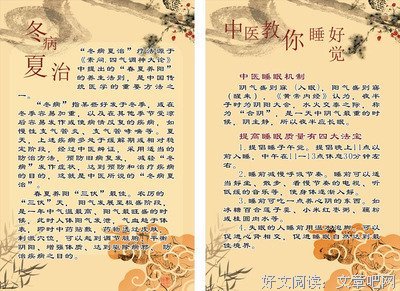 冬病夏治
“冬病夏治”疗法源于
《素问·四气调神大论》
中提出的“春夏养阳”
的养生法则，是中国传
统医学的重要方法之
一。
“冬病”指某些好发于冬季，或在
冬季容易加重，以及在其他季节受邪
后容易发作或使病情反复的疾病，如
慢性支气管炎、支气管哮喘等。夏
天，上述疾病多处于缓解期或相对稳
定阶段，经过中医辨证，采用适当的
防治方法，预防旧病复发，减轻“冬
病”发作症状，达到预防和治疗疾病
的目的，这就是中医所说的“冬病夏
治”。
春夏养阳“三伏”最佳。农历的
“三伏天”，阳气发展至极盛阶段，
是一年中气温最高、阳气最旺盛的时
候。此时人体阳气生发，气血趋于体
表，即时中药贴敷，药物透过皮肤，
刺激穴位，可以起到调节脏腑，平衡阴
阳，增强体质，达到驱除病邪，防
治疾病之目的。
中医教你睡好觉
中医睡眠机制
阴气盛则寐（入眠），阳气盛则寤
（醒来），《黄帝内经》认为，夜半
子时为阴阳大会，水火交泰之际，称
为“合阴”，是一天中阴气最重的时
候，阴主静，所以夜半应长眠。
提高睡眠质量有四大法宝
1.提倡睡子午觉。提倡晚上11点以
前入睡，中午在11--13点休息30分钟左
右。
2.睡前减慢呼吸节奏。睡前可以适
当静坐、散步、看慢节奏的电视、听
低缓的音乐等，使身体逐渐入静。
3.睡前可吃一点养心阴的东西。如
冰糖百合莲子羹、小米红枣粥、藕粉
或桂圆肉水等。
4.失眠的人睡前用温水泡脚，可以
促进心肾相交，促进睡眠自然达到最
佳境界。
好文阅读：文章吧网